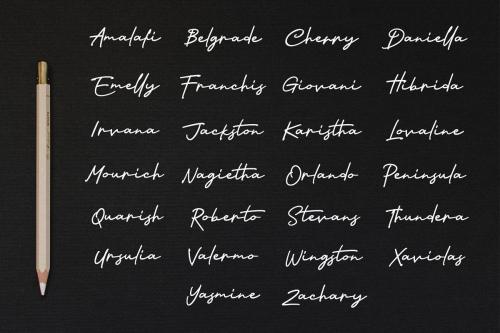 Amalafi Belgrade Cherry Daniella
Emelly Franchis Giovani Hibrida
Irvana Jackston Karistha Lovaline
Mourich Nagietha Orlando Peninsula
Quarish Roberto Stevans Thundera
Ursulia Valermo Wingston Xaviolas
Yasmine Zachary